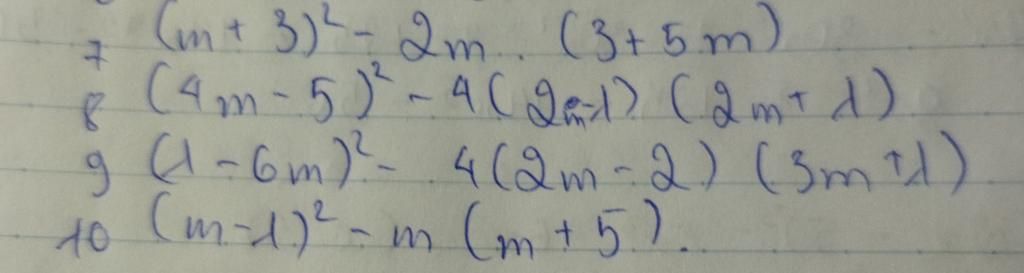 7 (m + 3)² - 2m . (3 + 5m)
8 (4m - 5)² - 4(2m-1) (2m + 1)
9 (1 - 6m)² - 4(2m - 2) (3m + 1)
10 (m - 1)² - m (m + 5).